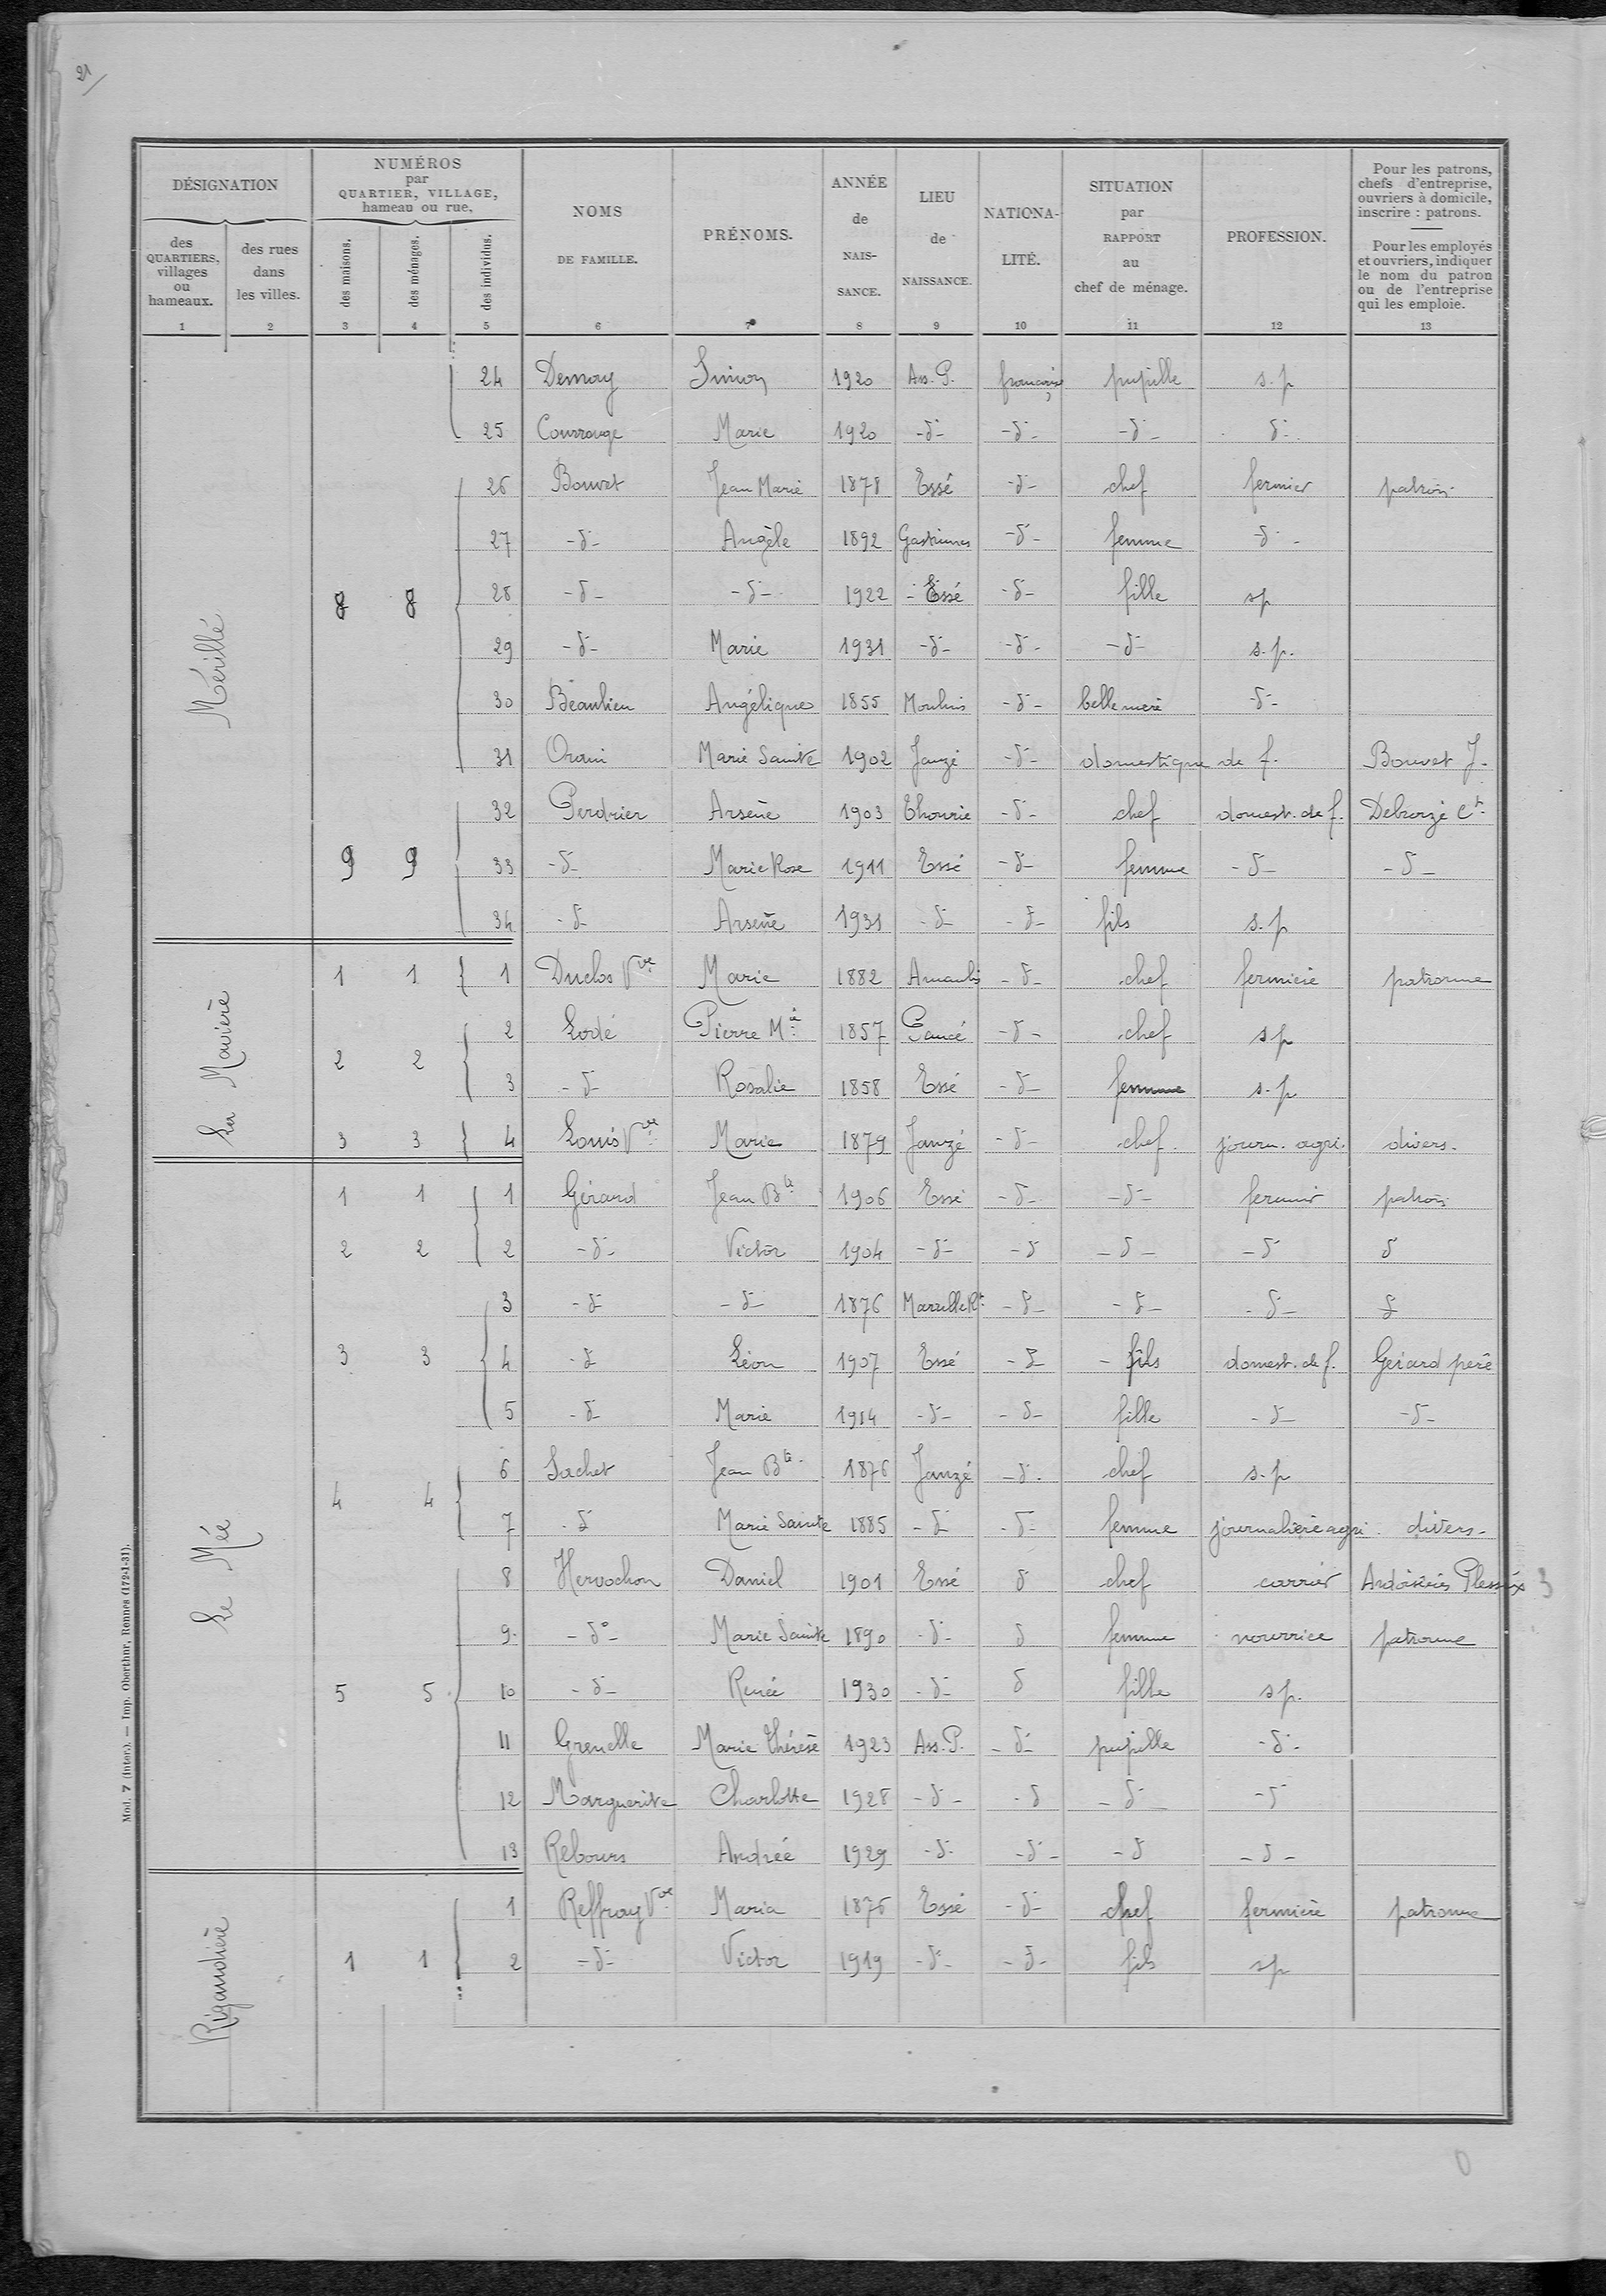 21/
DÉSIGNATION
NUMÉROS par QUARTIER, VILLAGE, hameau ou rue,
NOMS DE FAMILLE.
PRÉNOMS.
ANNÉE de NAIS-SANCE.
LIEU de NAISSANCE.
NATIONA-LITÉ.
SITUATION par RAPPORT au chef de ménage.
PROFESSION.
Pour les patrons, chefs d'entreprise, ouvriers à domicile, inscrire : patrons.
Pour les employés et ouvriers, indiquer le nom du patron ou de l'entreprise qui les emploie.
des QUARTIERS, villages ou hameaux.
des rues dans les villes.
des maisons.
des ménages.
des individus.
1 2 3 4 5 6 7 8 9 10 11 12 13
Mérillé
24 Demoy Simon 1920 Ass. P. française pupille s.p
25 Courrouge Marie 1920 -d- -d- -d- d-
8 8
26 Bouvet Jean Marie 1878 Essé -d- chef fermier patron
27 -d- Angèle 1892 -d- femme -d-
28 -d- -d- 1922 - Essé -d- fille sp
29 -d- Marie 1931 -d- -d- -d- s.p.
30 Beaulieu Angélique 1855 Moulins -d- belle mère -d-
31 Orain Marie Sainte 1902 Janzé -d- domestique de f. Bouvet J.
9 9
32 Perdrier Arsène 1903 Thourie -d- chef domest. de f. Debroize Ct
33 -d- Marie Rose 1911 Essé -d- femme -d- -d-
34 -d- Arsène 1931 -d- -d- fils s.p
La Mavière
1 1 1 Duclos Vve Marie 1882 Amanlis -d- chef fermière patronne
2 2
2 Lodé Pierre Mie 1857 Pancé -d- chef sp
3 -d- Rosalie 1858 Essé -d- femme s.p
3 3 4 Louis Vve Marie 1879 Janzé -d- chef journ. agri. divers.
Le Mée
1 1 1 Gérard Jean Bte 1906 Essé -d- -d- fermier patron
2 2 2 -d- Victor 1904 -d- -d -d- -d d
3 3
3 -d -d- 1876 Marcillé Rt -d- -d- -d- d
4 -d Léon 1907 Essé -d - fils domest. de f. Gérard père
5 -d Marie 1914 -d- -d- fille -d- -d-
4 4
6 Sachet Jean Bte 1876 Janzé -d. chef s.p
7 -d Marie Sainte 1885 -d -d- femme journalière agri. divers.
5 5
8 Hervochon Daniel 1901 Essé d chef carrier Ardoisières Plessix 3
9. -do- Marie Sainte 1890 -d- d femme nourrice patronne
10 -d- Renée 1930 -d- d fille sp.
11 Grenelle Marie Thérèse 1923 Ass. P. -d- pupille -d-
12 Marguerite Charlotte 1928 -d- -d -d- -d
13 Rebours Andrée 1929 -d- -d- -d -d-
Rigaudière
1 1
1 Reffray Vve Maria 1876 Essé -d- chef fermière patronne
2 -d- Victor 1919 -d- -d- fils sp
Mod. 7 (inter.). — Imp. Oberthur, Rennes (172-1-31).
0